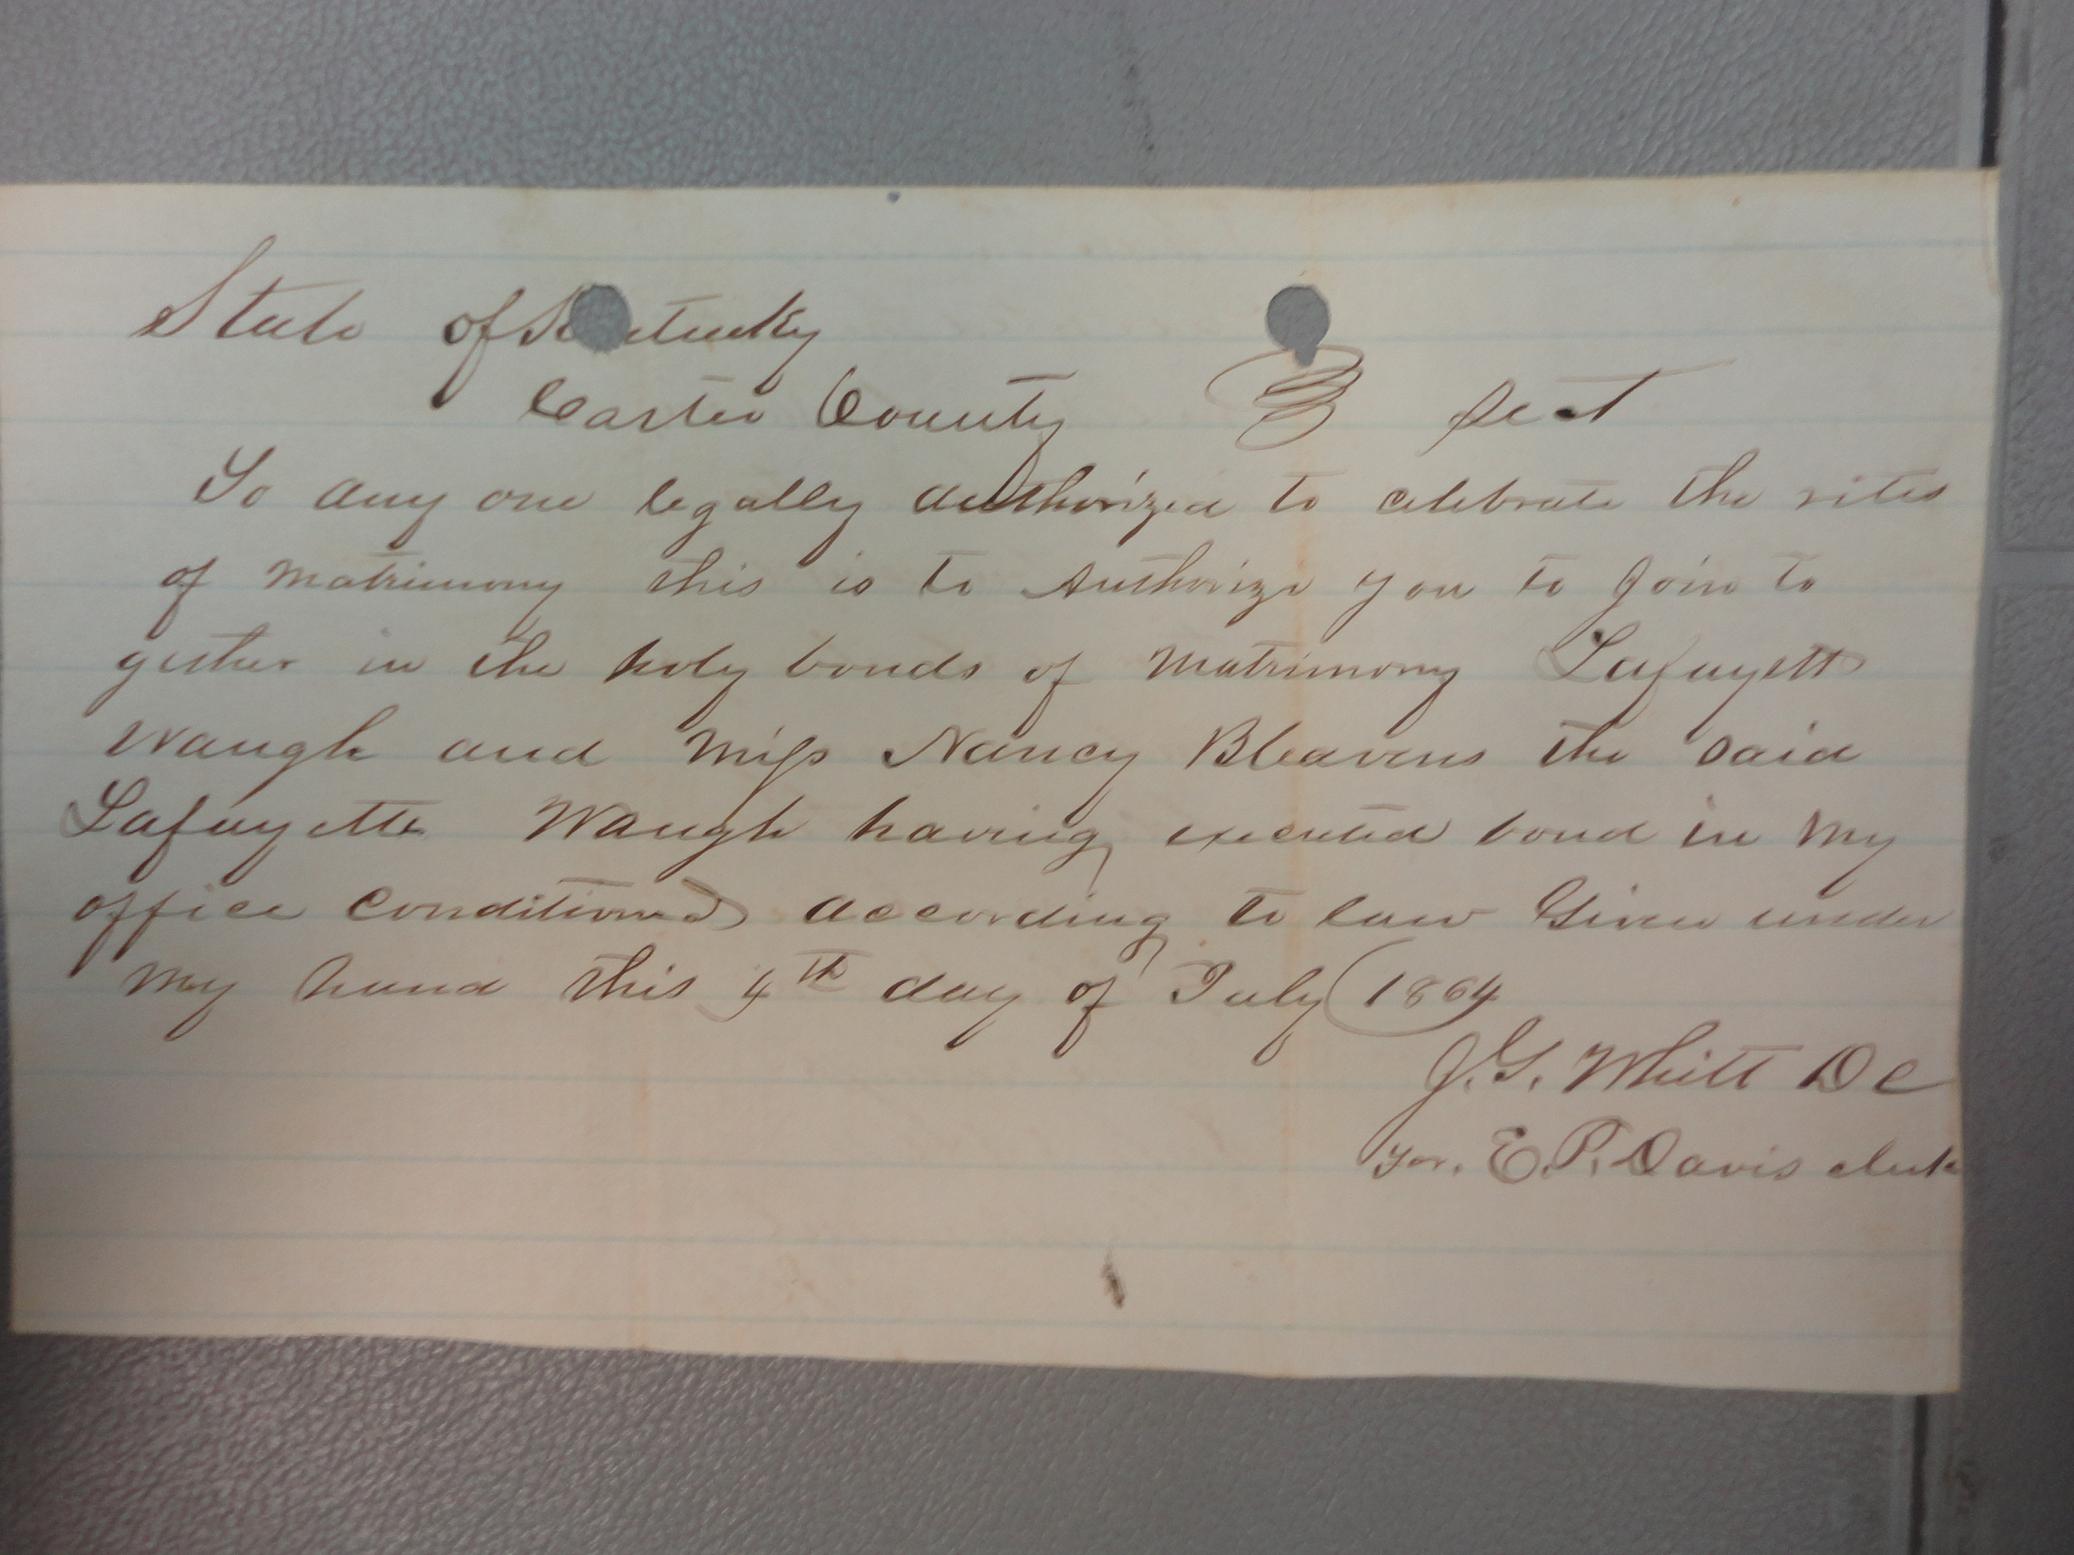 State of Kentucky
Carter County Sct
To any one legally authorized to celebrate the rites
of Matrimony this is to Authorize you to Join to
gether in the holy bonds of Matrimony Lafayett
Waugh and Miss Nancy Bleavens the said
Lafayette Waugh having executed bond in My
office Conditioned according to law Given under
My hand this 4th day of July 1864
J. G. Whitt D C
For. E. P. Davis clerk